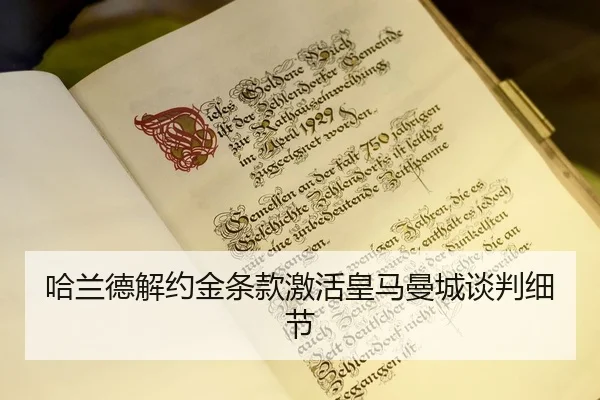 Dieses Goldene Buch
ist der Zehlendorfer Gemeinde
zur Rathauseinweihung
im April 1929
zugeeignet worden.
Gemessen an der fast 750 jährigen
Geschichte Zehlendorfs ist seither
nur eine unbedeutende Zeitspanne
gangen.
wenigen Jahren, die es
wurde, enthält es jedoch
der dunkelsten
die an
哈兰德解约金条款激活皇马曼城谈判细
节
auch
Welt deutscher
Zehlendorf nicht
gegangen ist.